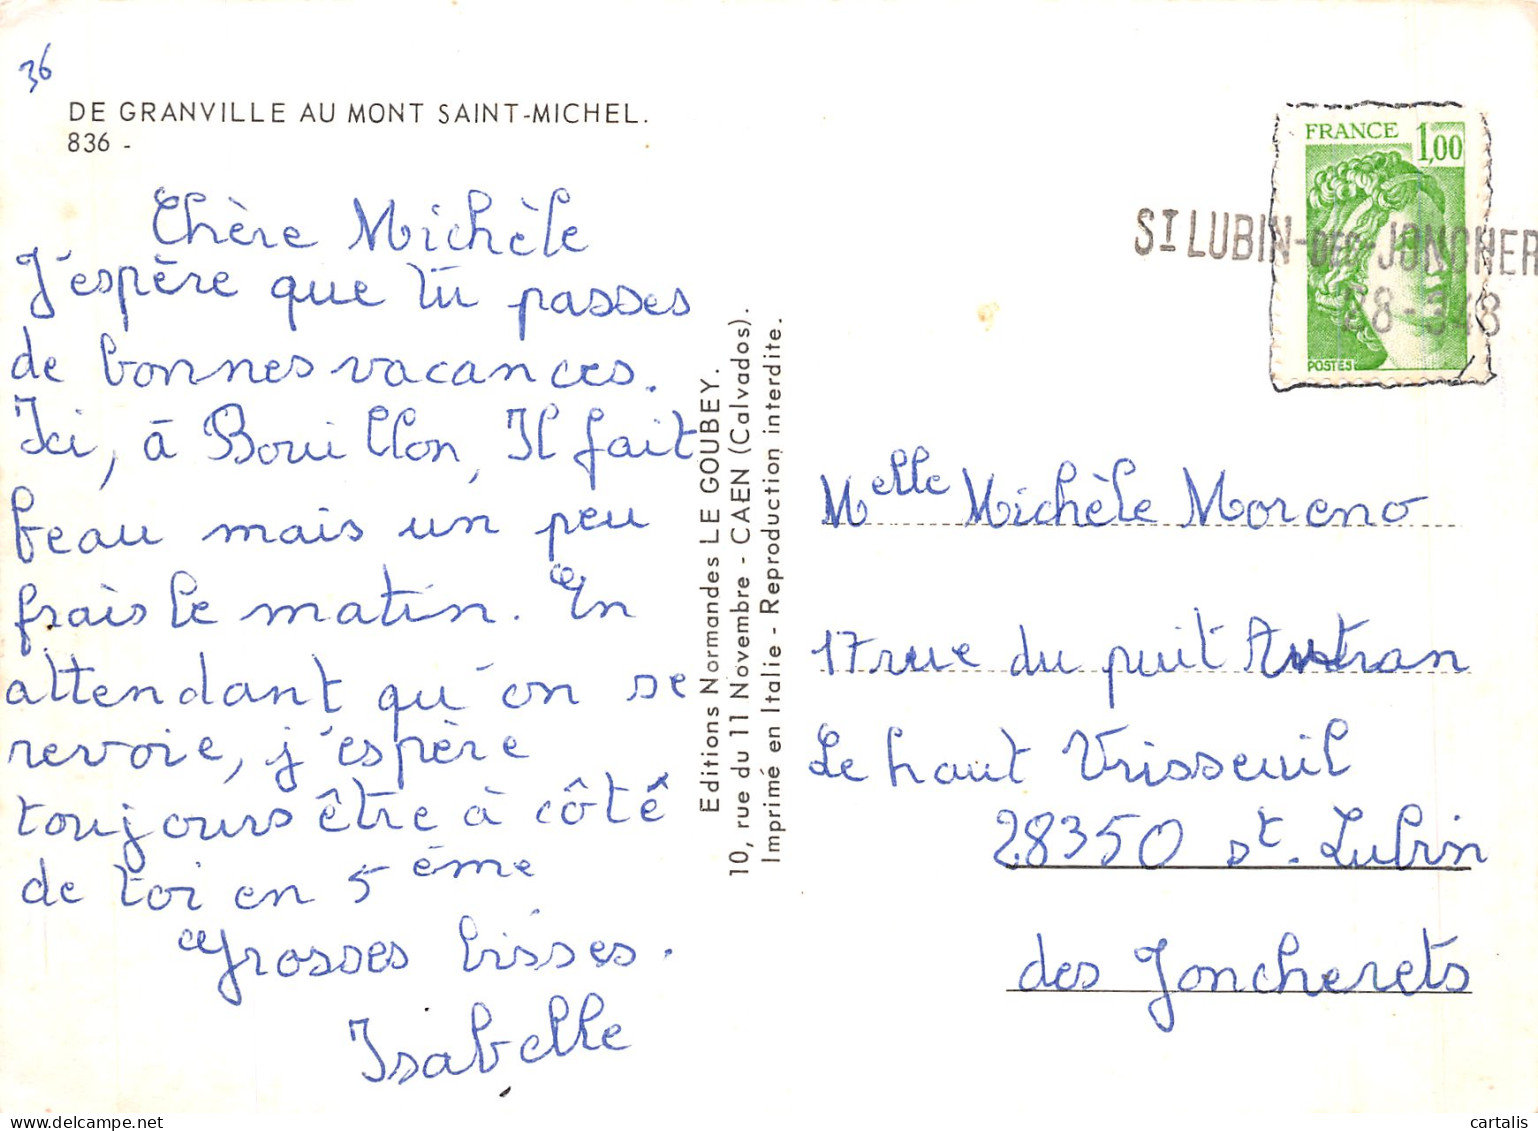 36
DE GRANVILLE AU MONT SAINT-MICHEL.
836 -
Chère Michèle
J'espère que tu passes
de bonnes vacances.
Ici, à Bouillon, Il fait
beau mais un peu
frais le matin. En
attendant qu'on se
revoie, j'espère
toujours être à côté
de toi en 5ème
Grosses bisses.
Isabelle
Editions Normandes LE GOUBEY.
10, rue du 11 Novembre - CAEN (Calvados).
Imprimé en Italie - Reproduction interdite.
FRANCE 1,00
POSTES
ST LUBIN-DES-JONCHER
28-348
Melle Michèle Moreno
17 rue du puit
Le haut Vrisseuil
28350 st. Lubin
des Joncherets
cartalis
www.delcampe.net